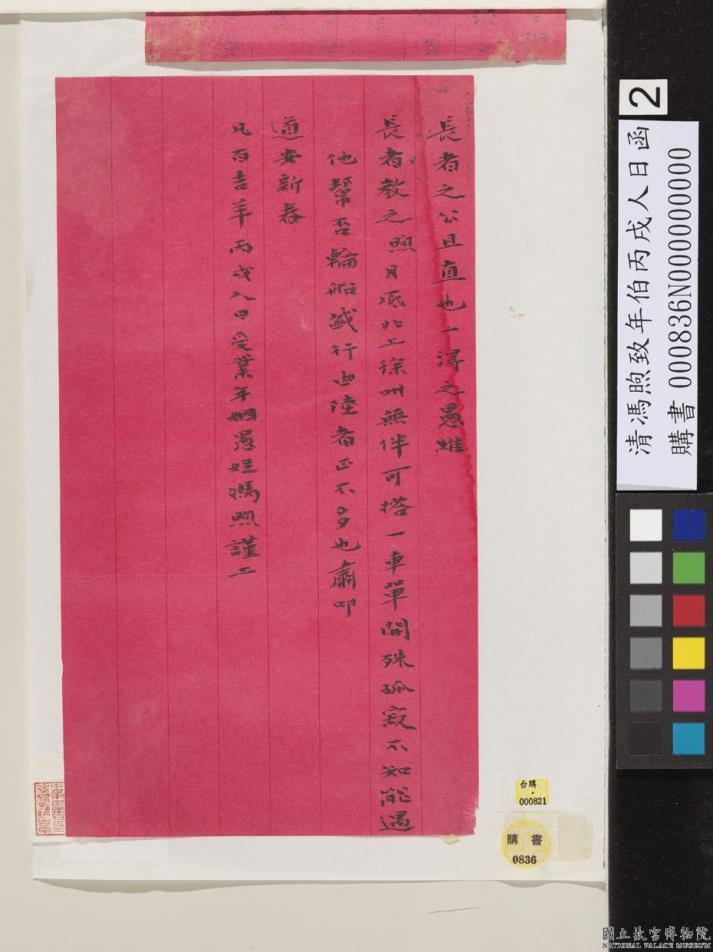 長者之公且直也一淂之愚惟
長者教之煦月底北上徐州無伴可搭一車單開殊孤寂不知能遇
他幫否輪船盛行由陸者正不多也肅叩
道安新春
凡百吉羊丙戌人日受業年姻愚姪馮煦謹上
2
清馮煦致年伯丙戌人日函
購書 000836N000000000
台購
000821
購書
0836
國立故宮博物院
NATIONAL PALACE MUSEUM